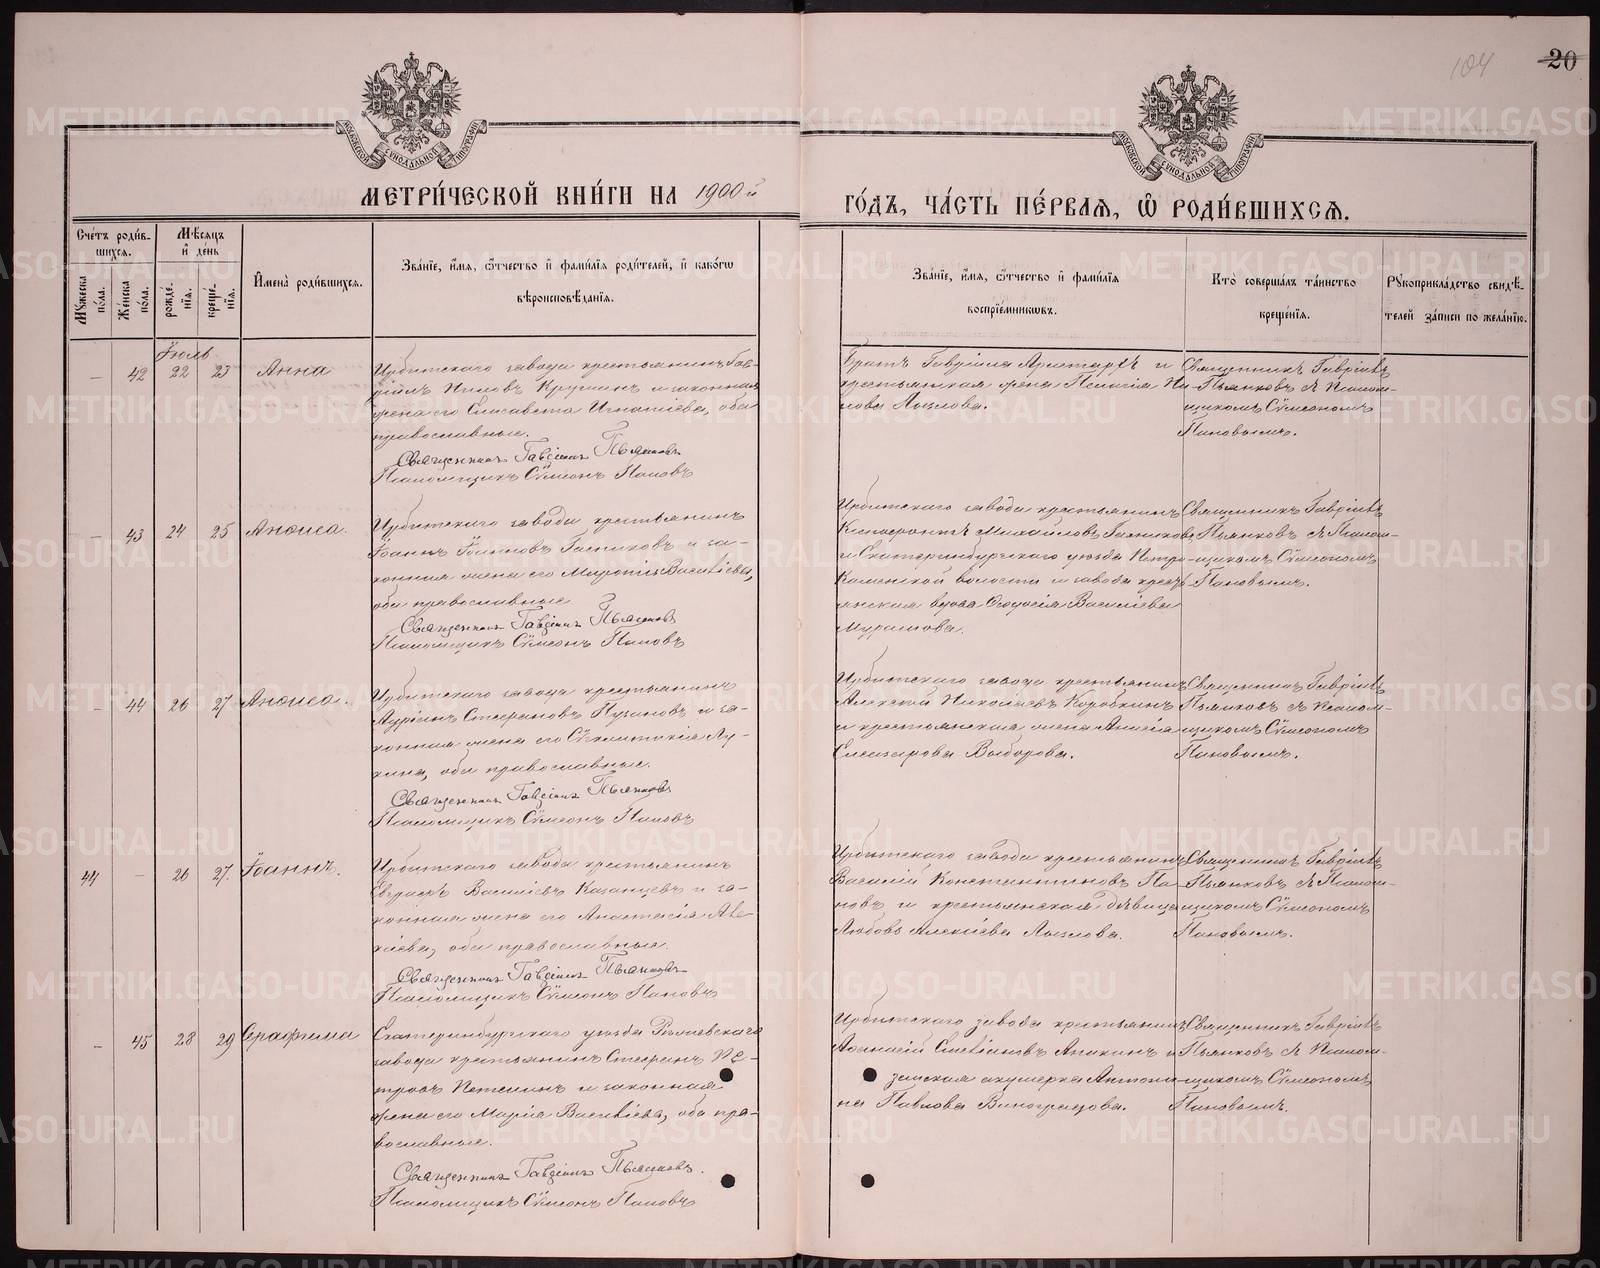 104
20
МОСКОВСКОЙ СУНОДАЛЬНОЙ ТИПОГРАФІИ
МОСКОВСКОЙ СУНОДАЛЬНОЙ ТИПОГРАФІИ
МЕТРИ́ЧЕСКОЙ КНИ́ГИ НА 1900 й
ГО́ДЪ, ЧА́СТЬ ПЕ́РВАѦ, Ѡ РОДИ́ВШИХСѦ.
Сче́тъ роди́в-
шихсѧ.
Мѣ́сѧцъ
и҆ де́нь
Мꙋжеска по́ла.
Же́нска по́ла.
рожде́-
нїѧ.
креще́-
нїѧ.
И҆мена̀ роди́вшихсѧ.
Зва́нїе, и҆́мѧ, ѻ҆́тчество и҆ фами́лїѧ роди́телей, и҆ како́гѡ
вѣроисповѣ́данїѧ.
Зва́нїе, и҆́мѧ, ѻ҆́тчество и҆ фами́лїѧ
воспрїе́мникѡвъ.
Кто̀ соверша́лъ та́инство
креще́нїѧ.
Рꙋкоприкла́дство свидѣ́-
телей за́писи по жела́нїю.
Іюль
– 42 22 23 Анна
Ирбитскаго завода крестьянинъ Гав-
ріилъ Ниловъ Кругшинъ и законная
жена его Елисавета Игнатіева, оба
православные.
Священникъ Гавріилъ Пьянковъ
Псаломщикъ Сѵмеонъ Пановъ
Братъ Гавріила Аристархъ и
крестьянская жена Пелагія Ни-
лова Лызлова.
Священникъ Гавріилъ
Пьянковъ съ Псалом-
щикомъ Сѵмеономъ
Пановымъ.
– 43 24 25 Анѳиса.
Ирбитскаго завода крестьянинъ
Іоаннъ Іоанновъ и за-
конная жена его Васильева,
оба православные
Священникъ Гавріилъ Пьянковъ
Псаломщикъ Сѵмеонъ Пановъ
Ирбитскаго завода крестьянинъ
Михайловъ
и Екатеринбургскаго уѣзда Петро-
Каменской волости и завода кресть-
янская вдова Ѳеодосія Васильева
Мурашова.
Священникъ Гавріилъ
Пьянковъ съ Псалом-
щикомъ Сѵмеономъ
Пановымъ.
– 44 26 27 Анѳиса.
Ирбитскаго завода крестьянинъ
Стефановъ Пузановъ и за-
конная жена его Сѵнклитикія Лу-
кина, оба православные.
Священникъ Гавріилъ Пьянковъ
Псаломщикъ Сѵмеонъ Пановъ
Ирбитскаго завода крестьянинъ
Алексѣй Николаевъ Коробкинъ
и крестьянская жена
Елеазарова Выборова.
Священникъ Гавріилъ
Пьянковъ съ Псалом-
щикомъ Сѵмеономъ
Пановымъ.
44 – 26 27. Іоаннъ.
Ирбитскаго завода крестьянинъ
Евграфъ Васильевъ Казанцевъ и за-
конная жена его Анастасія Але-
ксіева, оба православные.
Священникъ Гавріилъ Пьянковъ
Псаломщикъ Сѵмеонъ Пановъ
Ирбитскаго завода крестьянинъ
Василій Константиновъ Па-
новъ и крестьянская дѣвица
Любовь Алексіева Лызлова.
Священникъ Гавріилъ
Пьянковъ съ Псалом-
щикомъ Сѵмеономъ
Пановымъ.
– 45 28 29 Серафима
Екатеринбургскаго уѣзда
завода крестьянинъ Стефанъ Пе-
тровъ и законная
жена его Марія Васильева, оба пра-
вославные.
Священникъ Гавріилъ Пьянковъ.
Псаломщикъ Сѵмеонъ Пановъ
Ирбитскаго завода крестьянинъ
Аѳанасій Аникинъ и
земская акушерка Антони-
на Павлова Виноградова.
Священникъ Гавріилъ
Пьянковъ съ Псалом-
щикомъ Сѵмеономъ
Пановымъ.
METRIKI.GASO-URAL.RU